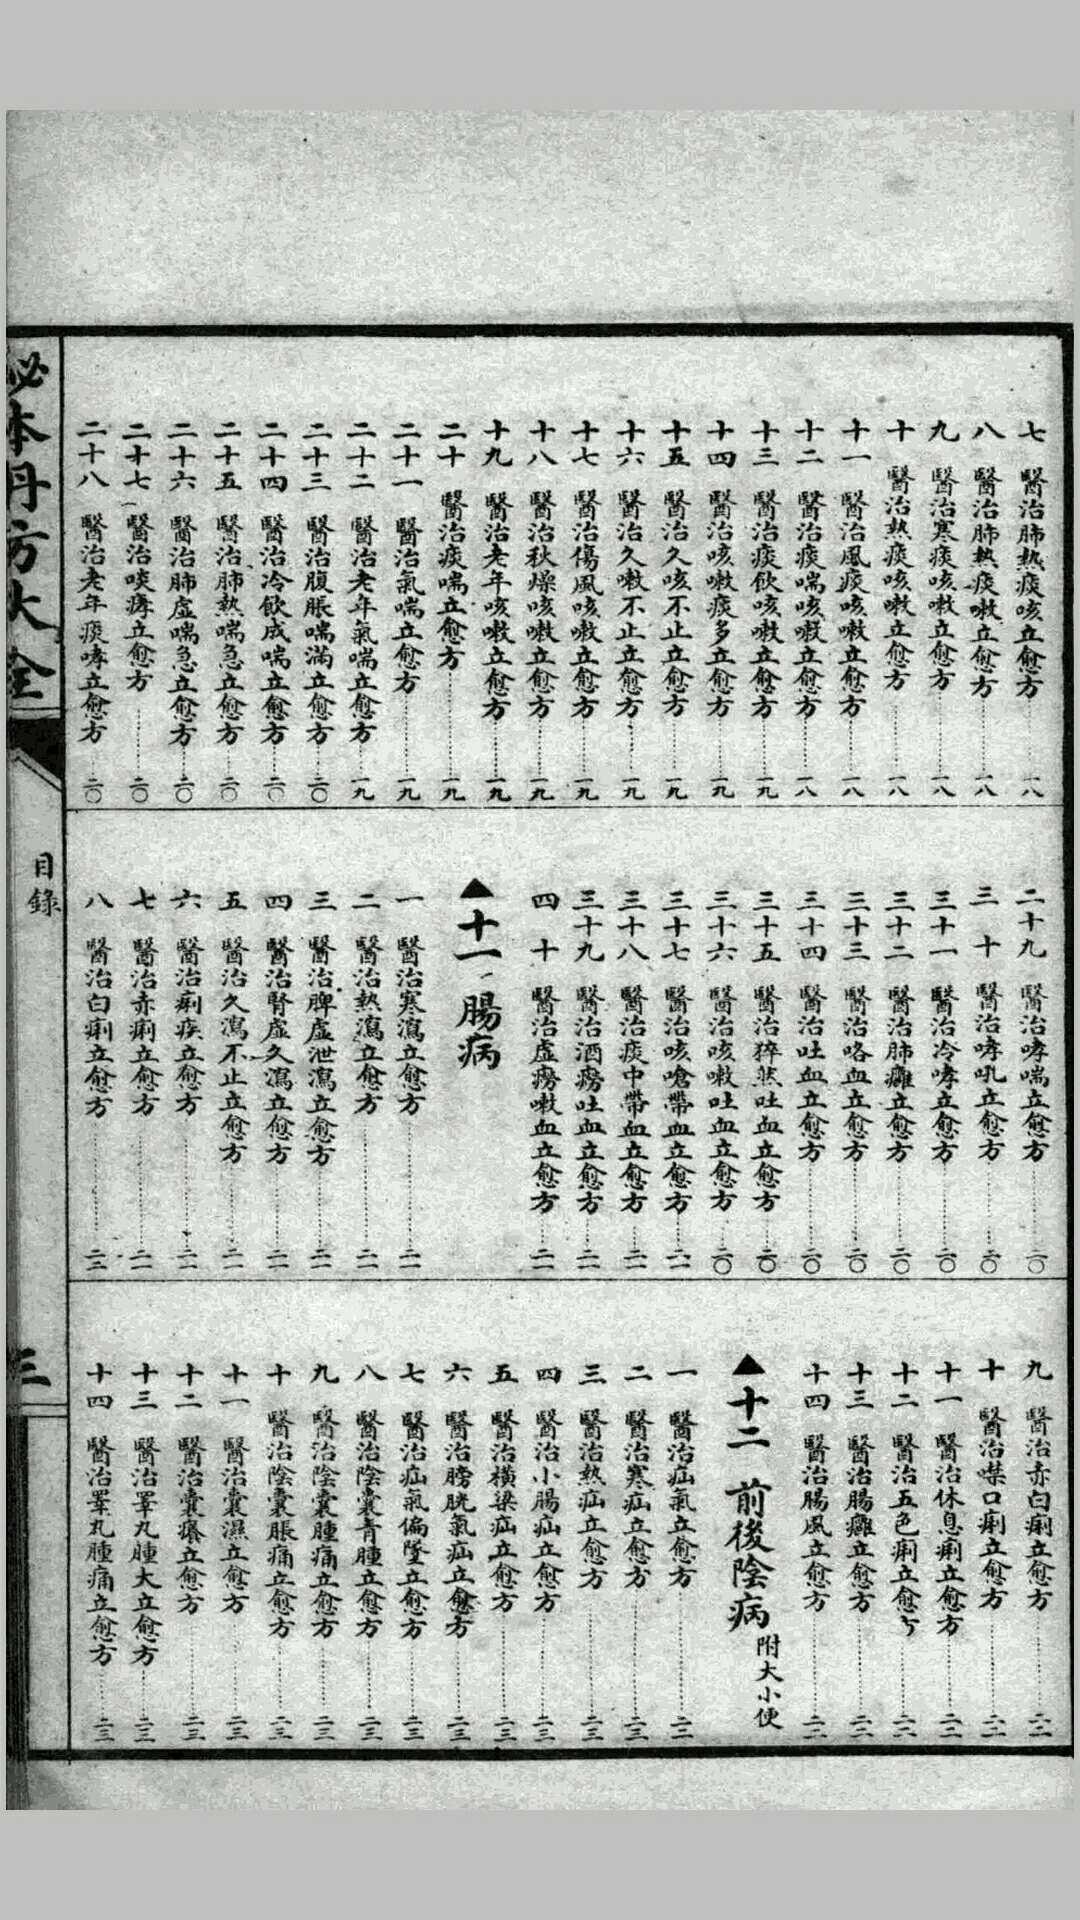 七 醫治肺熱痰咳立愈方 一八
八 醫治肺熱痰嗽立愈方 一八
九 醫治寒痰咳嗽立愈方 一八
十 醫治熱痰咳嗽立愈方 一八
十一 醫治風痰咳嗽立愈方 一八
十二 醫治痰喘咳嗽立愈方 一八
十三 醫治痰飲咳嗽立愈方 一九
十四 醫治咳嗽痰多立愈方 一九
十五 醫治久咳不止立愈方 一九
十六 醫治久嗽不止立愈方 一九
十七 醫治傷風咳嗽立愈方 一九
十八 醫治秋燥咳嗽立愈方 一九
十九 醫治老年咳嗽立愈方 一九
二十 醫治痰喘立愈方 一九
二十一 醫治氣喘立愈方 一九
二十二 醫治老年氣喘立愈方 一九
二十三 醫治腹脹喘滿立愈方 二〇
二十四 醫治冷飲成喘立愈方 二〇
二十五 醫治肺熱喘急立愈方 二〇
二十六 醫治肺虛喘急立愈方 二〇
二十七 醫治痰哮立愈方 二〇
二十八 醫治老年痰哮立愈方 二〇
二十九 醫治哮喘立愈方 二〇
三十 醫治哮吼立愈方 二〇
三十一 醫治冷哮立愈方 二〇
三十二 醫治肺癰立愈方 二〇
三十三 醫治咯血立愈方 二〇
三十四 醫治吐血立愈方 二〇
三十五 醫治猝然吐血立愈方 二〇
三十六 醫治咳嗽吐血立愈方 二〇
三十七 醫治咳嗆帶血立愈方 二一
三十八 醫治痰中帶血立愈方 二一
三十九 醫治酒癆吐血立愈方 二一
四十 醫治虛癆嗽血立愈方 二一
▲十一、腸病
一 醫治寒瀉立愈方 二一
二 醫治熱瀉立愈方 二一
三 醫治脾虛泄瀉立愈方 二一
四 醫治腎虛久瀉立愈方 二一
五 醫治久瀉不止立愈方 二一
六 醫治痢疾立愈方 二一
七 醫治赤痢立愈方 二一
八 醫治白痢立愈方 二二
九 醫治赤白痢立愈方 二二
十 醫治噤口痢立愈方 二二
十一 醫治休息痢立愈方 二二
十二 醫治五色痢立愈方 二二
十三 醫治腸癰立愈方 二二
十四 醫治腸風立愈方 二二
▲十二 前後陰病 附大小便
一 醫治疝氣立愈方 二二
二 醫治寒疝立愈方 二三
三 醫治熱疝立愈方 二三
四 醫治小腸疝立愈方 二三
五 醫治橫梁疝立愈方 二三
六 醫治膀胱氣疝立愈方 二三
七 醫治疝氣偏墜立愈方 二三
八 醫治陰囊青腫立愈方 二三
九 醫治陰囊腫痛立愈方 二三
十 醫治陰囊脹痛立愈方 二三
十一 醫治囊濕立愈方 二三
十二 醫治囊癢立愈方 二三
十三 醫治睪丸腫大立愈方 二三
十四 醫治睪丸腫痛立愈方 二三
秘本丹方大全
目錄
三